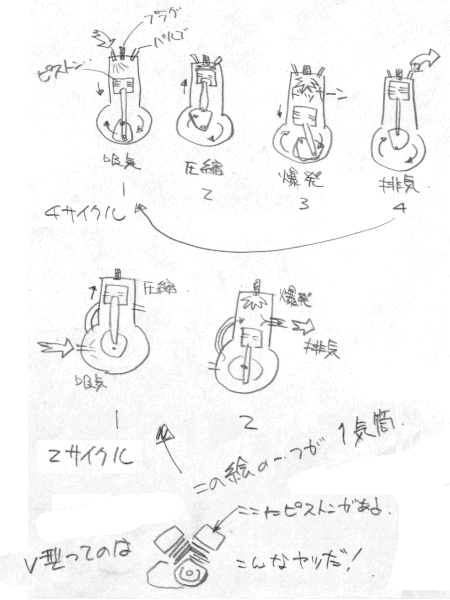 プラグ
バルブ
ピストン
吸気
圧縮
爆発
排気
1
2
3
4
4サイクル
圧縮
爆発
排気
吸気
1
2
2サイクル
この絵の一つが1気筒.
ここにピストンがあるよ.
V型ってのは
こんなヤツだ!